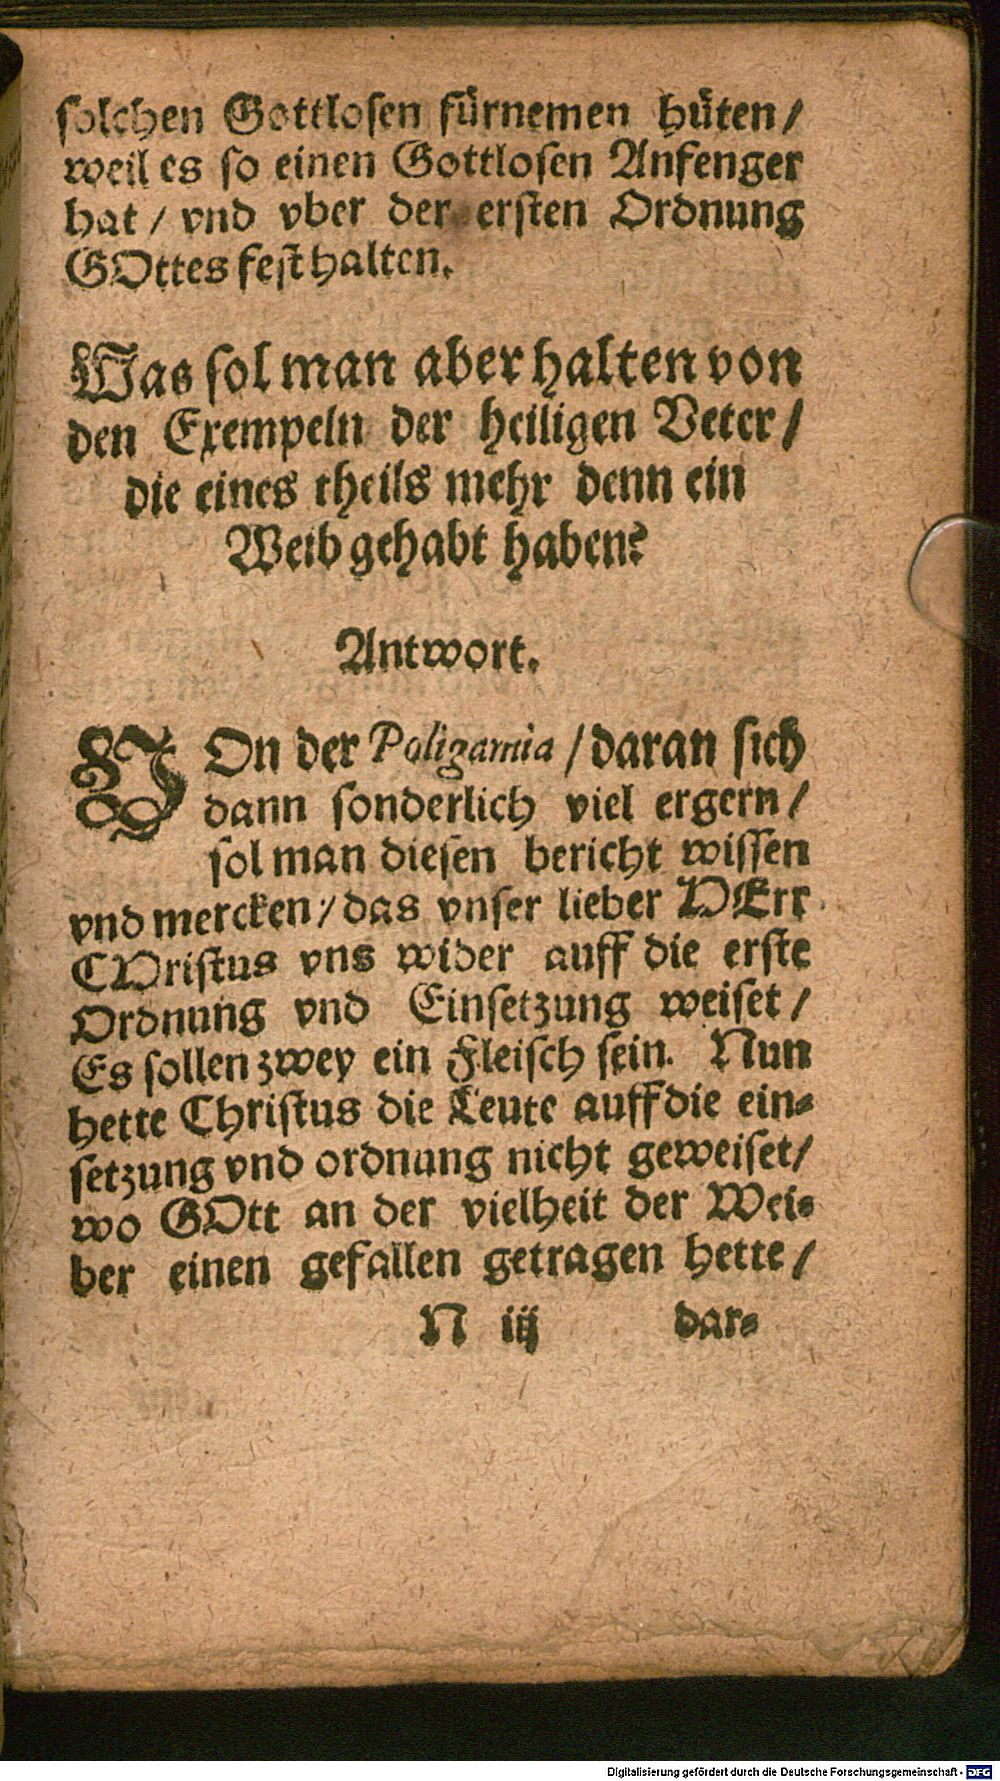 solchen Gottlosen fürnemen hüten/
weil es so einen Gottlosen Anfenger
hat / vnd vber der ersten Ordnung
GOttes fest halten.
Was sol man aber halten von
den Exempeln der heiligen Veter/
die eines theils mehr denn ein
Weib gehabt haben?
Antwort.
VOn der Poligamia / daran sich
dann sonderlich viel ergern /
sol man diesen bericht wissen
vnd mercken / das vnser lieber HErr
CHristus vns wider auff die erste
Ordnung vnd Einsetzung weiset /
Es sollen zwey ein Fleisch sein. Nun
hette Christus die Leute auff die ein-
setzung vnd ordnung nicht geweiset/
wo GOtt an der vielheit der Wei-
ber einen gefallen getragen hette /
N iij dar-
Digitalisierung gefördert durch die Deutsche Forschungsgemeinschaft - DFG